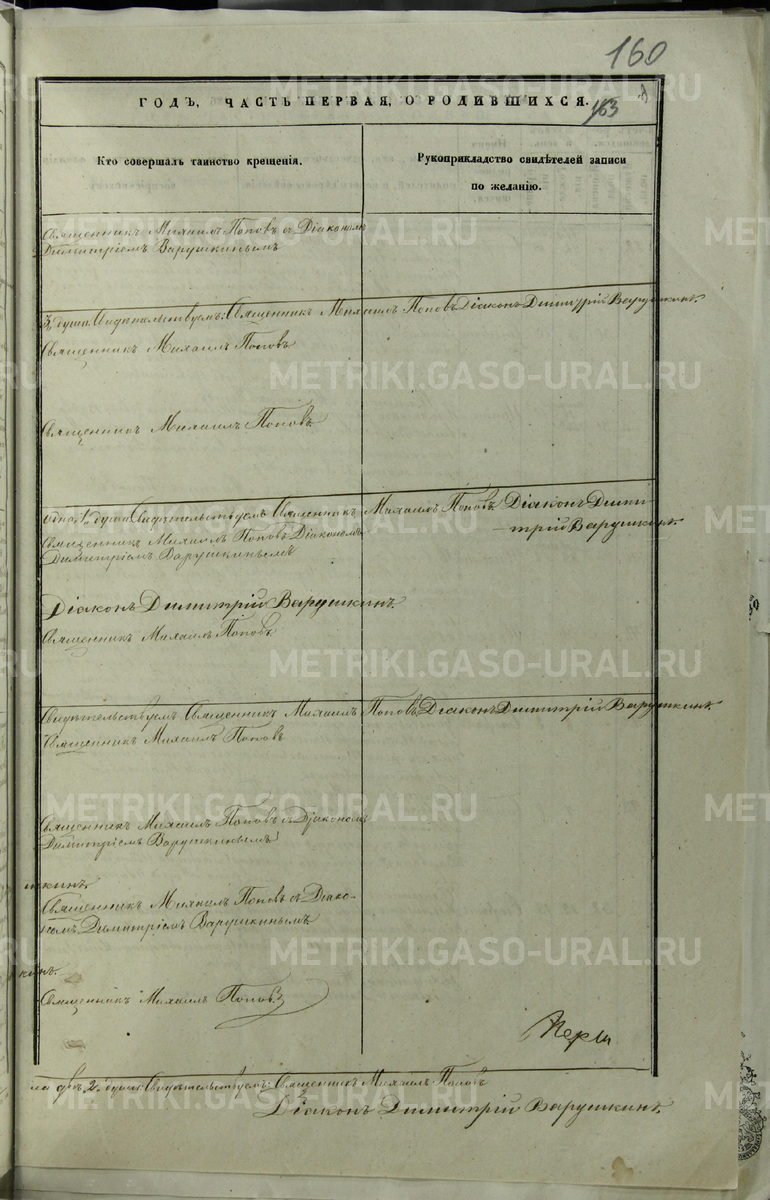 160
ГОДЪ, ЧАСТЬ ПЕРВАЯ, О РОДИВШИХСЯ.
163
Кто совершалъ таинство крещенія.
Рукоприкладство свидѣтелей записи
по желанію.
Священникъ Михаилъ Поповъ съ Діакономъ
Димитріемъ Варушкинымъ
3 души Свидѣтельствуемъ: Священникъ Михаилъ Поповъ Діаконъ Димитрій Варушкинъ.
Священникъ Михаилъ Поповъ
Священникъ Михаилъ Поповъ.
одна 1. душа Свидѣтельствуемъ Священникъ Михаилъ Поповъ Діаконъ Дими-
трій Варушкинъ.
Священникъ Михаилъ Поповъ Діакономъ
Димитріемъ Варушкинымъ
Діаконъ Димитрій Варушкинъ.
Священникъ Михаилъ Поповъ
Свидѣтельствуемъ Священникъ Михаилъ Поповъ Діаконъ Димитрій Варушкинъ.
Священникъ Михаилъ Поповъ
Священникъ Михаилъ Поповъ съ Діакономъ
Димитріемъ Варушкинымъ
шкинъ.
Священникъ Михаилъ Поповъ съ Діако-
номъ Димитріемъ Варушкинымъ
кинъ.
Священникъ Михаилъ Поповъ
две 2. души: Свидѣтельствуемъ: Священникъ Михаилъ Поповъ
Діаконъ Димитрій Варушкинъ.
METRIKI.GASO-URAL.RU